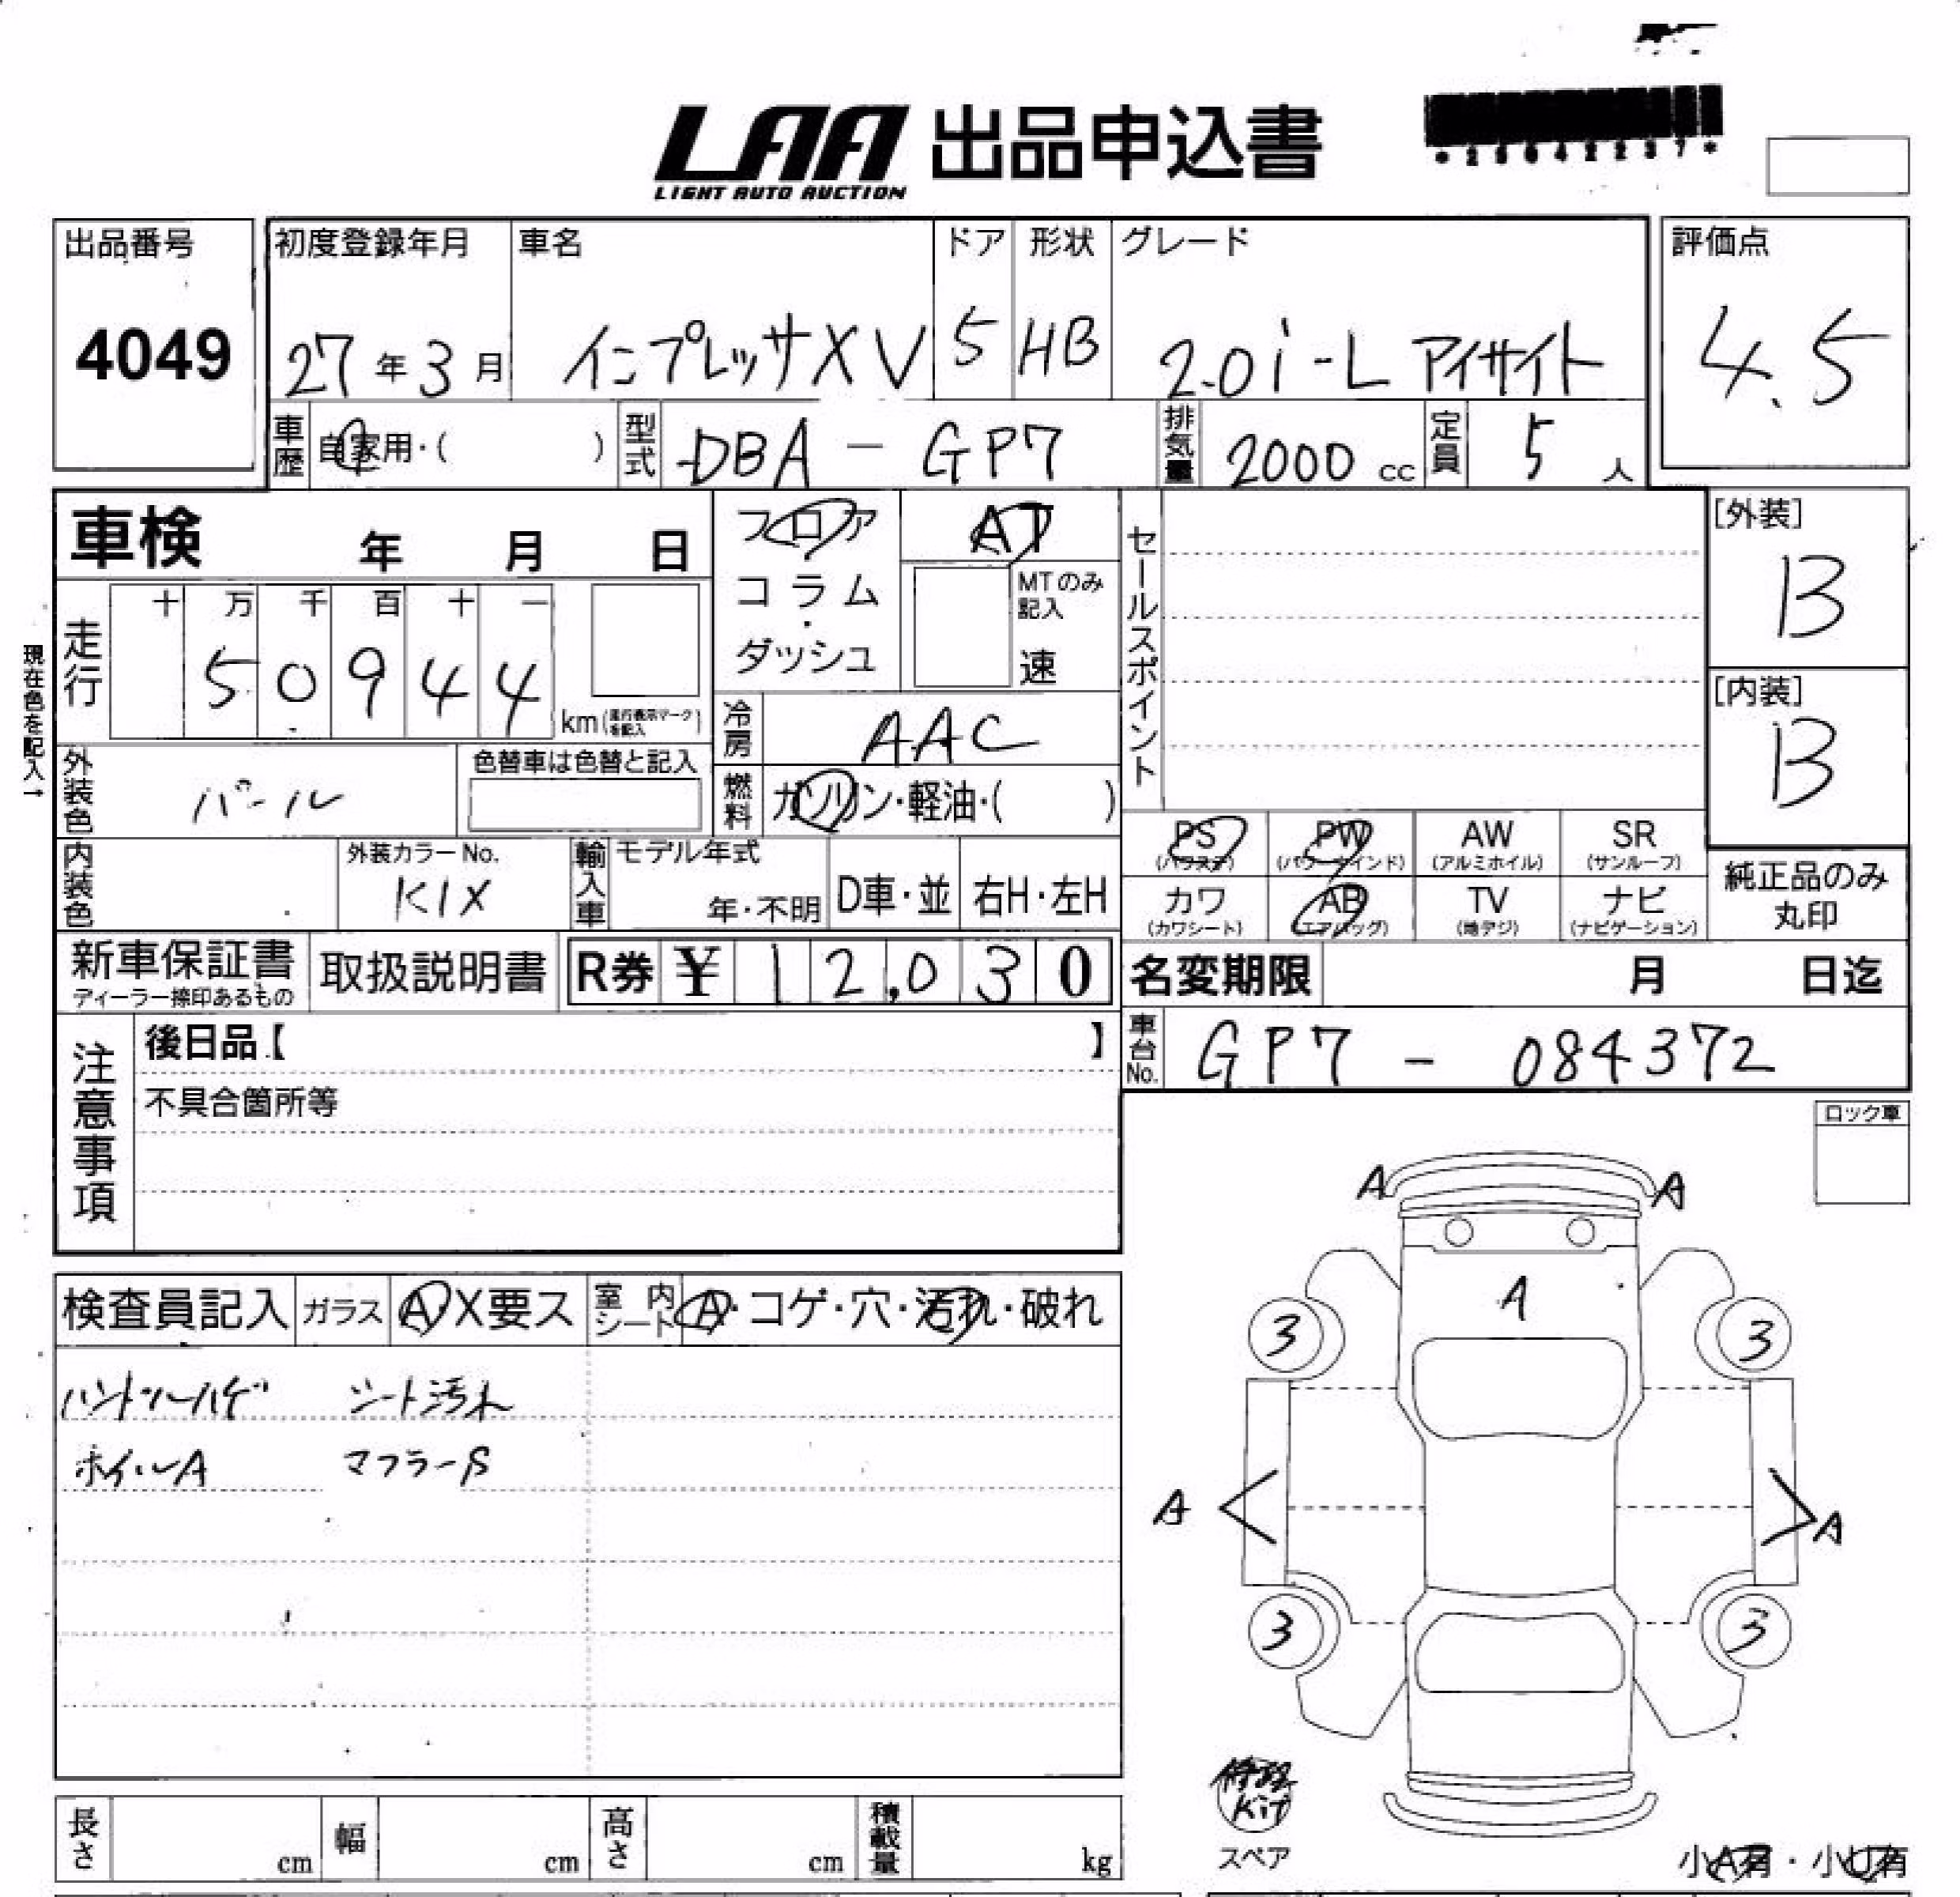 LAA 出品申込書
LIGHT AUTO AUCTION
*25042237*
出品番号 初度登録年月 車名 ドア 形状 グレード 評価点
4049 27年3月 インプレッサXV 5 HB 2.0i-L アイサイト 4.5
車歴 自家用・( ) 型式 DBA - GP7 排気量 2000 cc 定員 5 人
車検 年 月 日
フロア コラム・ダッシュ
AT
MTのみ記入
速
セールスポイント
[外装]
B
[内装]
B
現在色を記入→
走行 十 万 千 百 十 一
50944 km (走行表示マークを記入)
冷房 AAC
外装色 パール 色替車は色替と記入
燃料 ガソリン・軽油・( )
PS (パワステ) PW (パワーウインド) AW (アルミホイル) SR (サンルーフ)
カワ (カワシート) AB (エアバッグ) TV (地デジ) ナビ (ナビゲーション)
純正品のみ
丸印
内装色 外装カラーNo. K1X 輸入車 モデル年式 年・不明 D車・並 右H・左H
新車保証書 ディーラー捺印あるもの 取扱説明書 R券 ¥ 12,030
名変期限 月 日迄
車台No. GP7 - 084372
注意事項
後日品【 】
不具合箇所等
ロック車
検査員記入 ガラス A X要ス 室内シート A・コゲ・穴・汚れ・破れ
ハンドルハゲ シート汚れ
ホイルA マフラーS
A A
A
3 3
A A
3 3
修理
Kit
スペア
小A有・小U有
長さ cm 幅 cm 高さ cm 積載量 kg